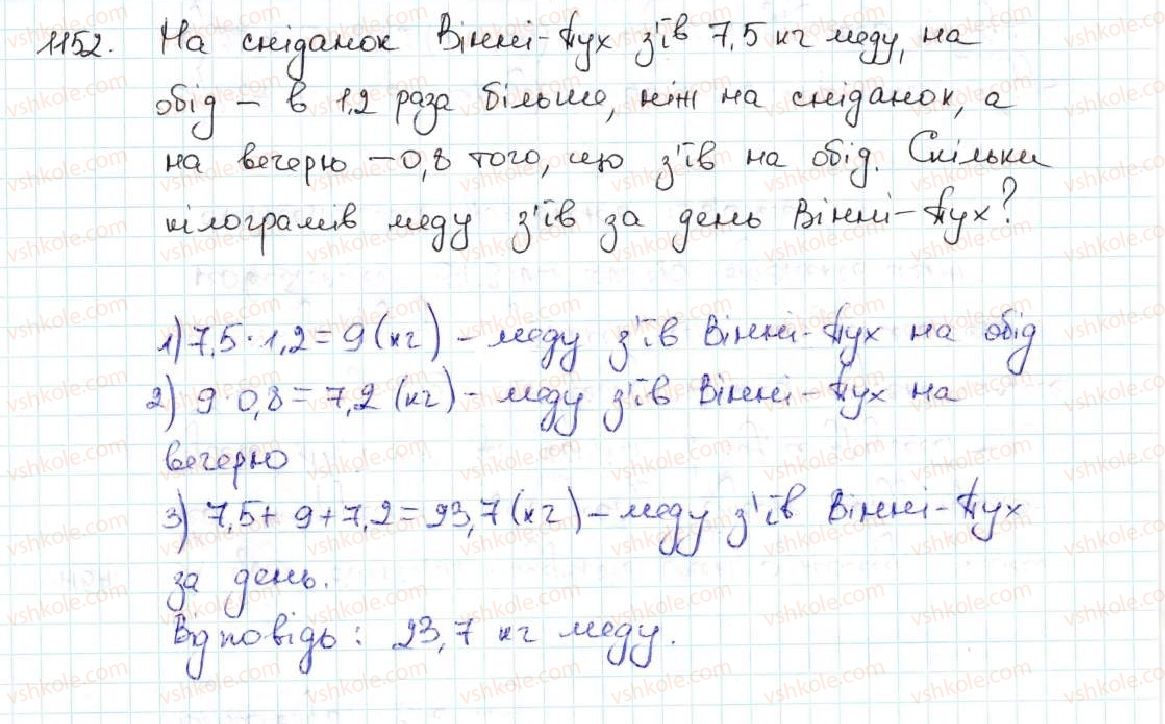 1152. На сніданок Вінні-Пух з'їв 7,5 кг меду, на
обід – в 1,2 раза більше, ніж на сніданок, а
на вечерю – 0,8 того, що з'їв на обід. Скільки
кілограмів меду з'їв за день Вінні-Пух?
1) 7,5 · 1,2 = 9 (кг) – меду з'їв Вінні-Пух на обід
2) 9 · 0,8 = 7,2 (кг) – меду з'їв Вінні-Пух на
вечерю
3) 7,5 + 9 + 7,2 = 23,7 (кг) – меду з'їв Вінні-Пух
за день.
Відповідь: 23,7 кг меду.